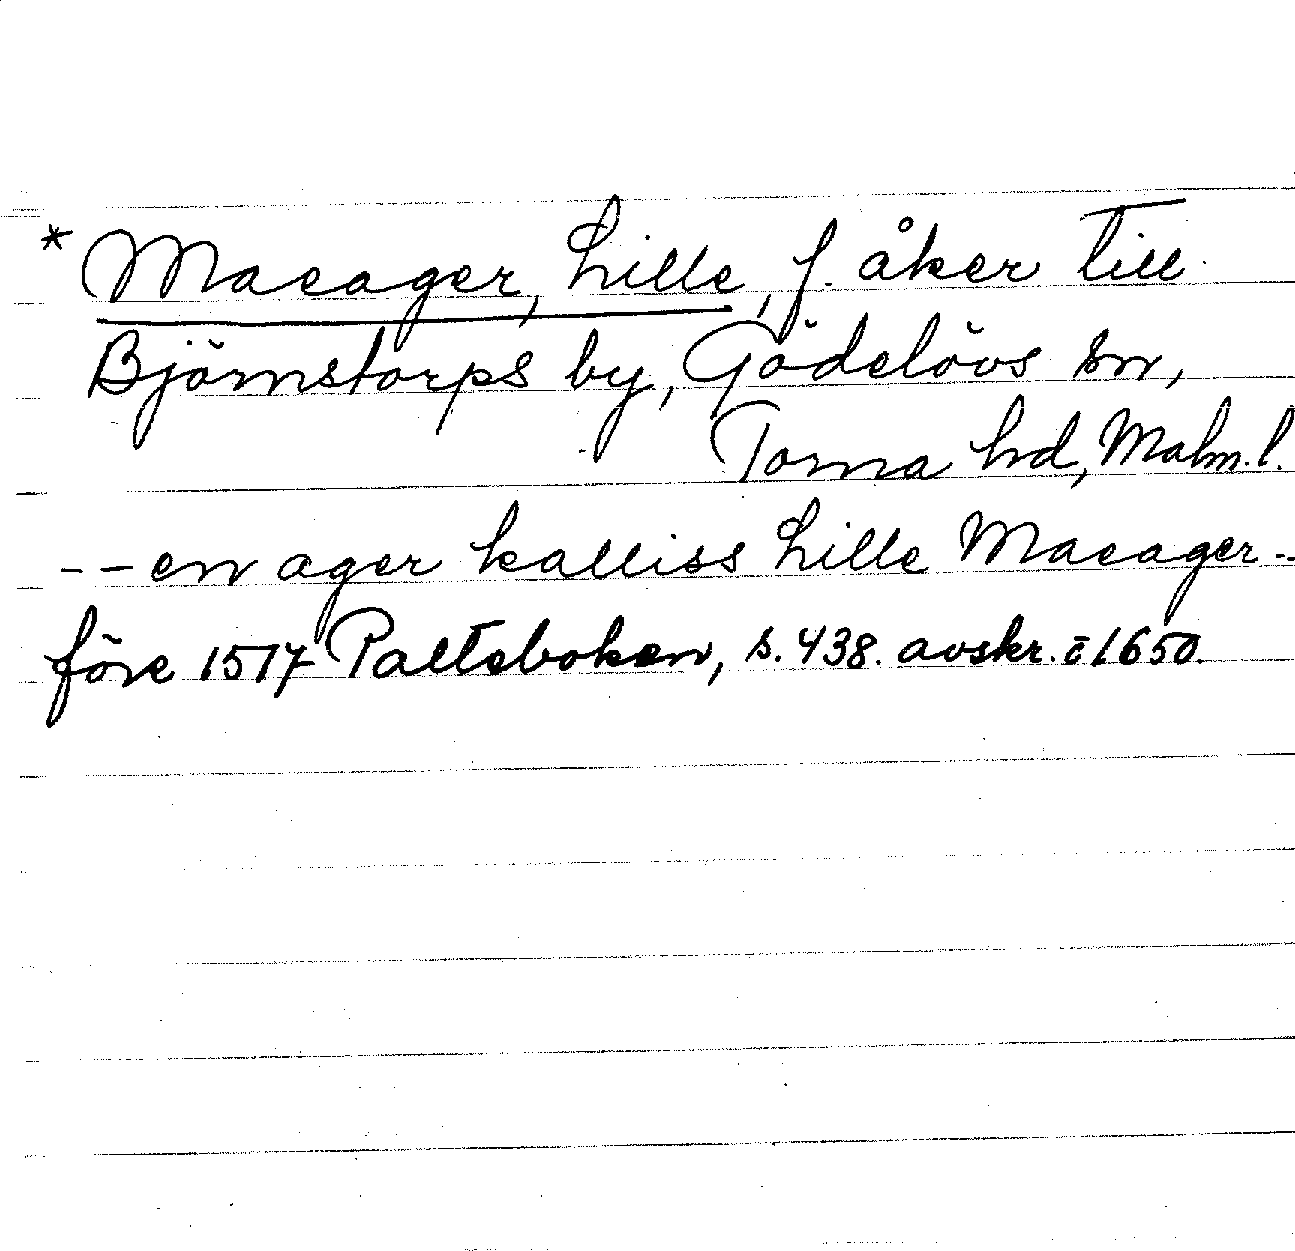 * Macager, Lille, f. åker till
Björnstorps by, Gödelövs sn,
Torna hd, Malm. l.
-- en ager kalliss Lille Macager --
före 1517 Palteboken, s. 438. avskr. c̄ 1650.